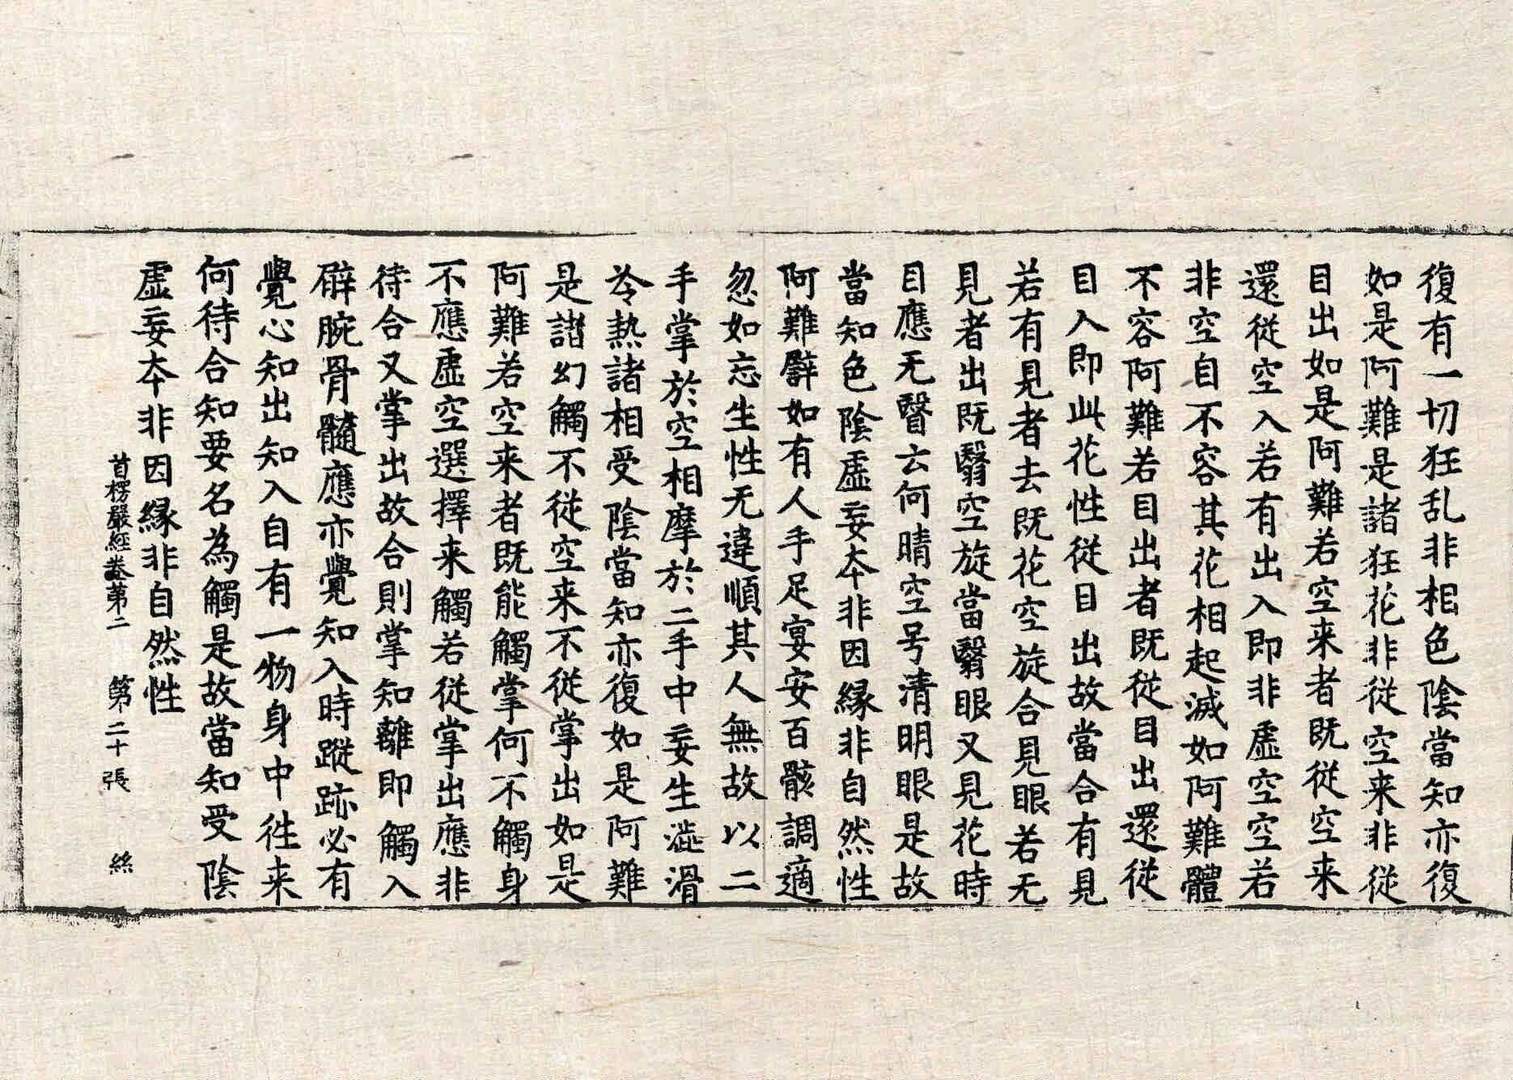 復有一切狂乱非相色陰當知亦復
如是阿難是諸狂花非從空来非從
目出如是阿難若空来者既從空来
還從空入若有出入即非虛空空若
非空自不容其花相起滅如阿難體
不容阿難若目出者既從目出還從
目入即此花性從目出故當合有見
若有見者去既花空旋合見眼若无
見者出既翳空旋當翳眼又見花時
目應无翳云何晴空号清明眼是故
當知色陰虛妄夲非因緣非自然性
阿難譬如有人手足宴安百骸調適
忽如忘生性无違順其人無故以二
手掌於空相摩於二手中妄生澁滑
冷熱諸相受陰當知亦復如是阿難
是諸幻觸不從空来不從掌出如是
阿難若空来者既能觸掌何不觸身
不應虛空選擇来觸若從掌出應非
待合又掌出故合則掌知離即觸入
臂腕骨髓應亦覺知入時蹤跡必有
覺心知出知入自有一物身中徃来
何待合知要名為觸是故當知受陰
虛妄夲非因緣非自然性
首楞嚴經卷第二 第二十張 絲